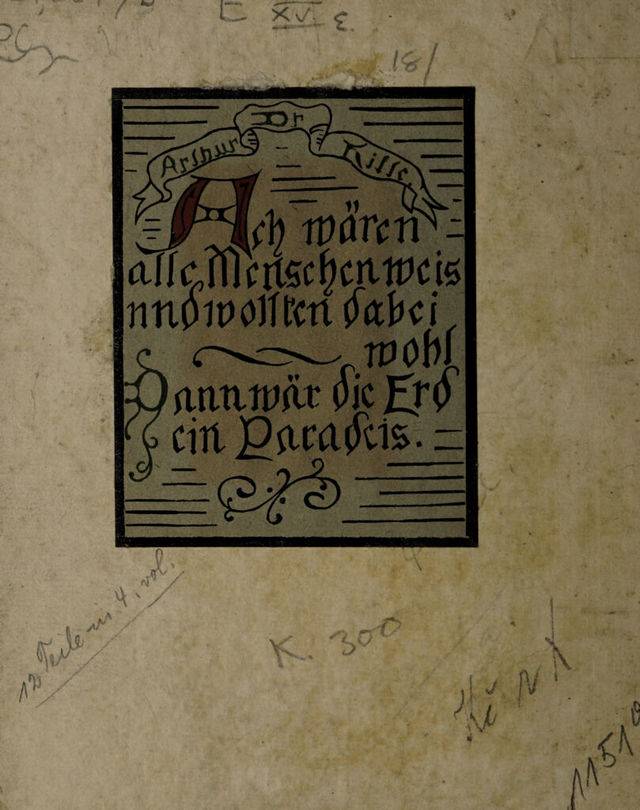 E XV
18/
Arthur Dr
Ach wären
alle Menschen weis
und wollten dabei
wohl
Dann wär die Erd
ein Paradeis.
12 Teile in 4. vol.
K. 300